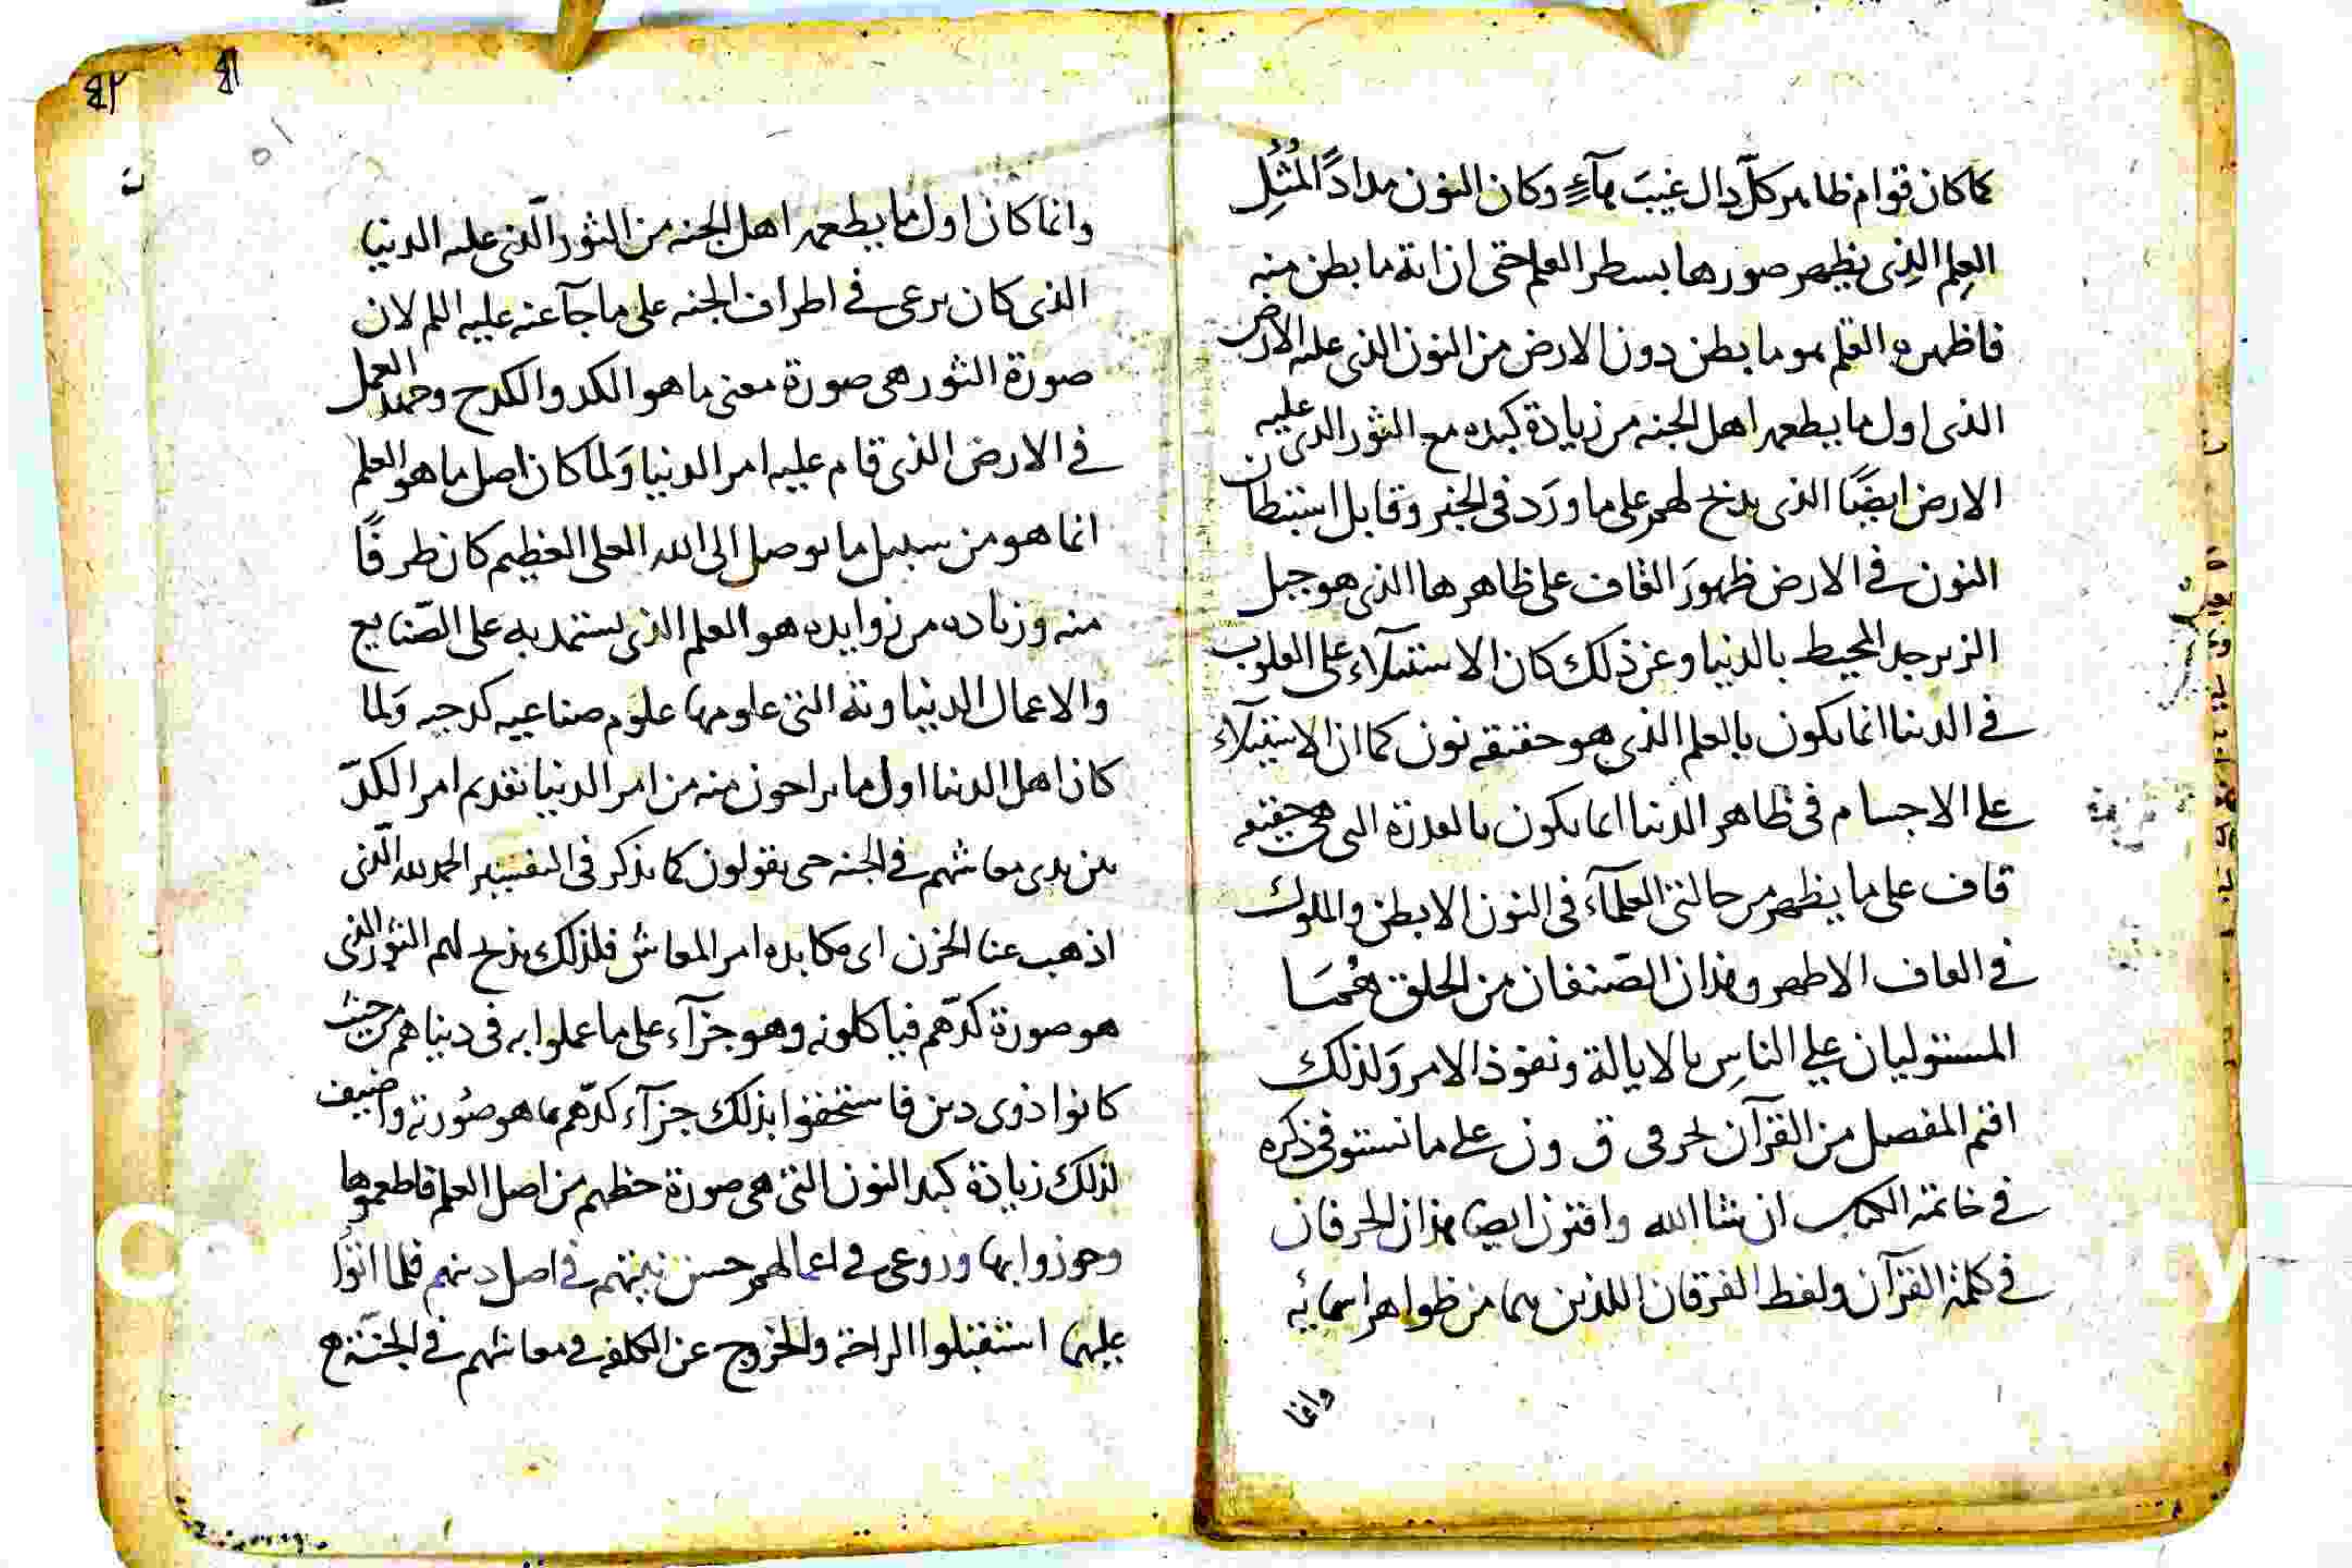 كما كان قوام ظاهر كلّ دال غيبَ مآءٍ وكان النون مدادًا لمُثُلِ
العِلم الذِى يظهر صورها بسطر القلم حتى ان انهٓ ما بطن منه
فاظهره القلم هو ما بطن دون الارض من النون الذى عليه الارض
الذى اول ما يطعمه اهل الجنه من زيادة كبده مع الثور الذى عليه
الارض ايضًا الذى يذبح لهم على ما ورَد فى الخبر وقابل استبطان
النون فى الارض ظهورَ القاف على ظاهرها الذى هو جبل
الزبرجد المحيط بالدنيا وعن ذلك كان الاستيلآء على القلوب
فى الدنيا انما يكون بالعلم الذى هو حقيقه نون كما ان الاستيلآء
على الاجسام فى ظاهر الدنيا انما يكون بالقدرة التى هى حقيقه
قاف على ما يظهر من حالتى العلمآء فى النون الابطن والملوك
فى القاف الاظهر وهذان الصّنفان من الخلق هُمَا
المستوليان على الناسِ بالايالة ونفوذ الامر وَلذلك
افتتح المفصل من القرآن بحرفى ق و ن على ما نستوفى ذكره
فى خاتمة الكتاب ان شا الله واقترن ايضا هذان الحرفان
فى كلمة القرآن ولفظ الفرقان اللذين هما من ظواهر اسمائه
وانما
٤١
٤٢
وانما كان اول ما يطعمه اهل الجنه من الثور الّذى عليه الدنيا
الذى كان يرعى فى اطراف الجنه على ما جآ عنه عليه السلم لان
صورة الثور هى صورة معنى ما هو الكد والكدح وجهد العمل
فى الارض الذى قام عليه امر الدنيا وَلما كان اصل ما هو العلم
انما هو من سبيل ما يوصل الى الله العلى العظيم كان طرفًا
منه وزياده من زوايده هو العلم الذى يستمد به على الصّنايع
والاعمال الدنياويّة التى علومها علوم صناعيه كدحيه وَلما
كان اهل الدنيا اول ما يراحون منه من امر الدنيا تقديم امر الكدّ
بين يدى معاشهم فى الجنه حتى يقولون كما يذكر فى التفسير الحمد لله الّذى
اذهب عنا الحزن اى مكابده امر المعاش فلذلك يذبح لهم الثور الذى
هو صورة كدّهم فياكلونه وهو جزآء على ما عملوا به فى دنياهم من حيث
كانوا ذوى دين فاستحقوا بذلك جزآء كدّهم بما هو صُورته واضيف
لذلك زيادة كبد النون التى هى صورة حظهم من اصل العلم فاطعموها
وجوزوا بها وروعى فى اعمالهم حسن نيتهم فى اصل دينهم فلما اتوا
عليهما استقبلوا الراحة والخروج عن الكلفه فى معاشهم فى الجنّة